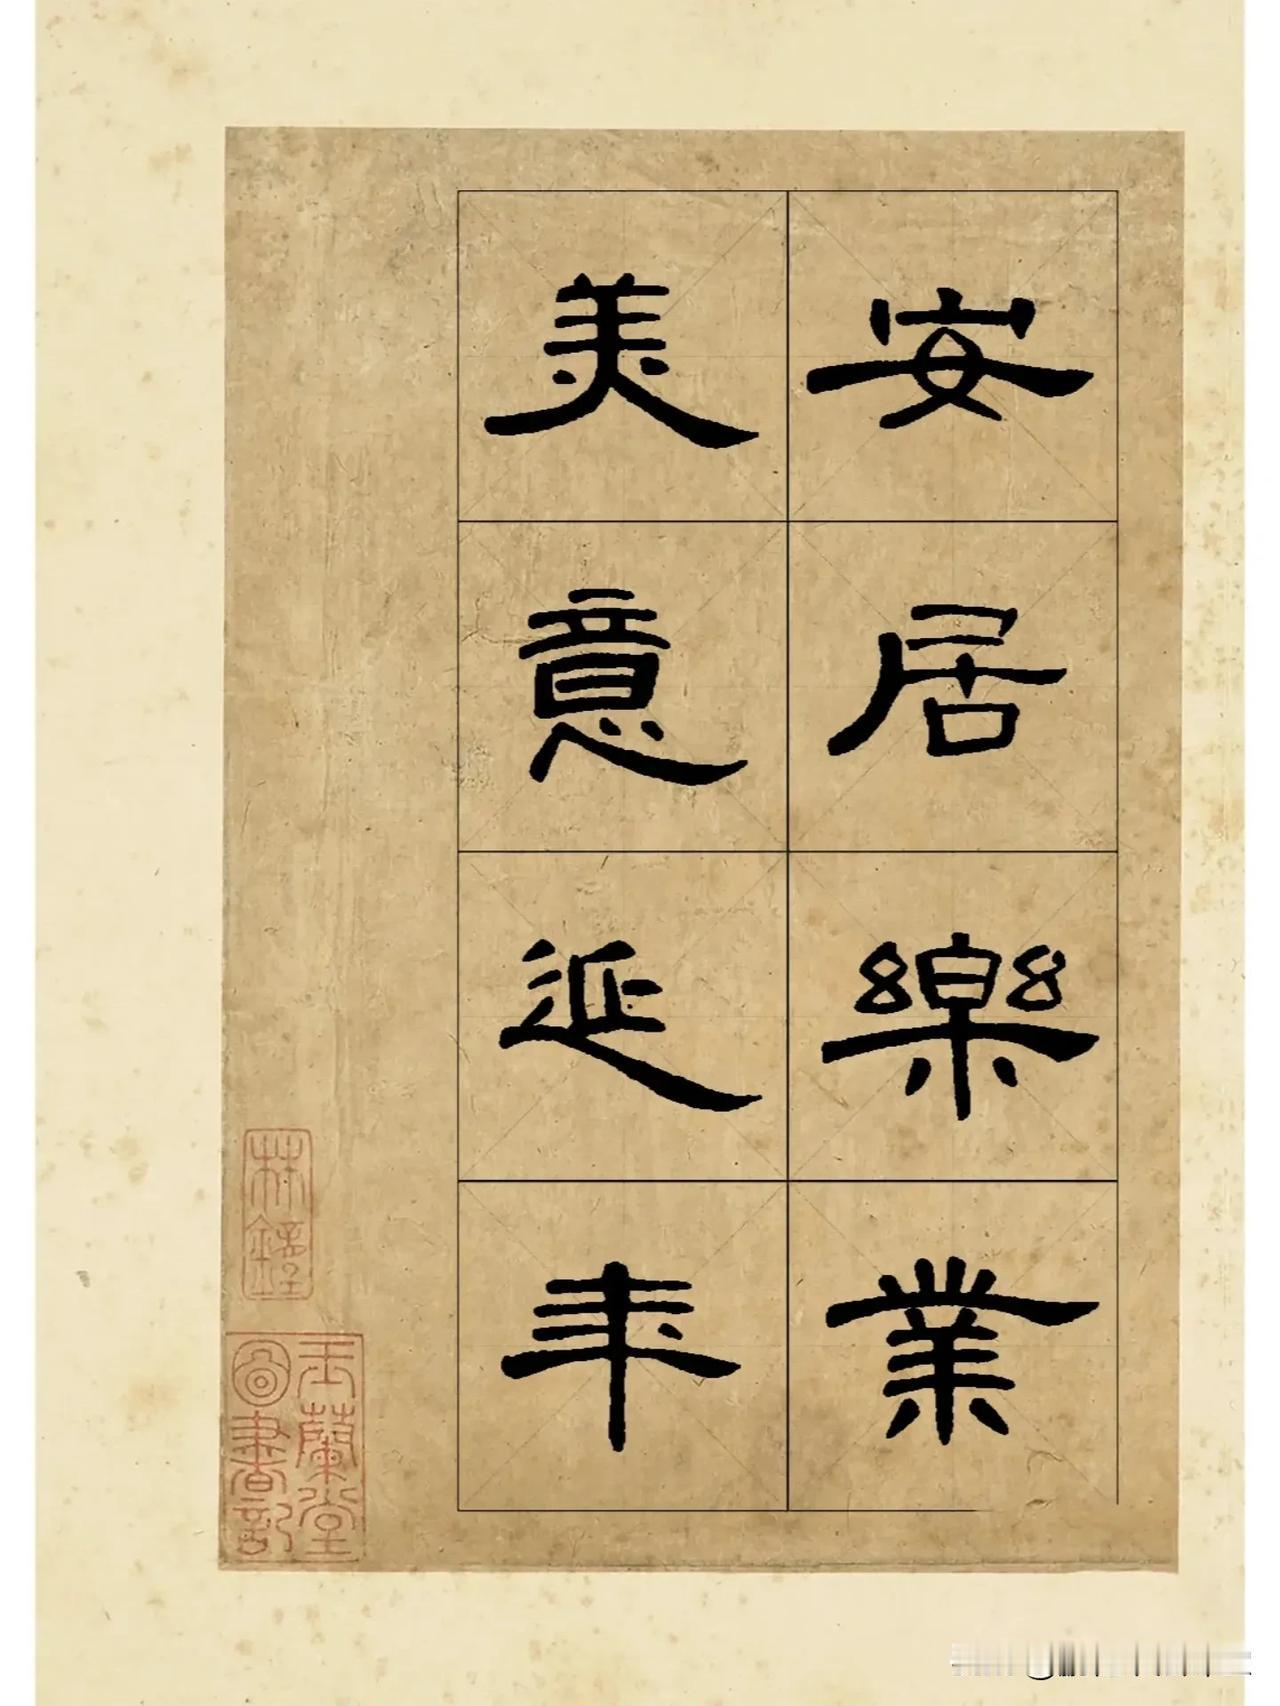 安居樂業
美意延年
林鍾
玉蘭堂
圖書記